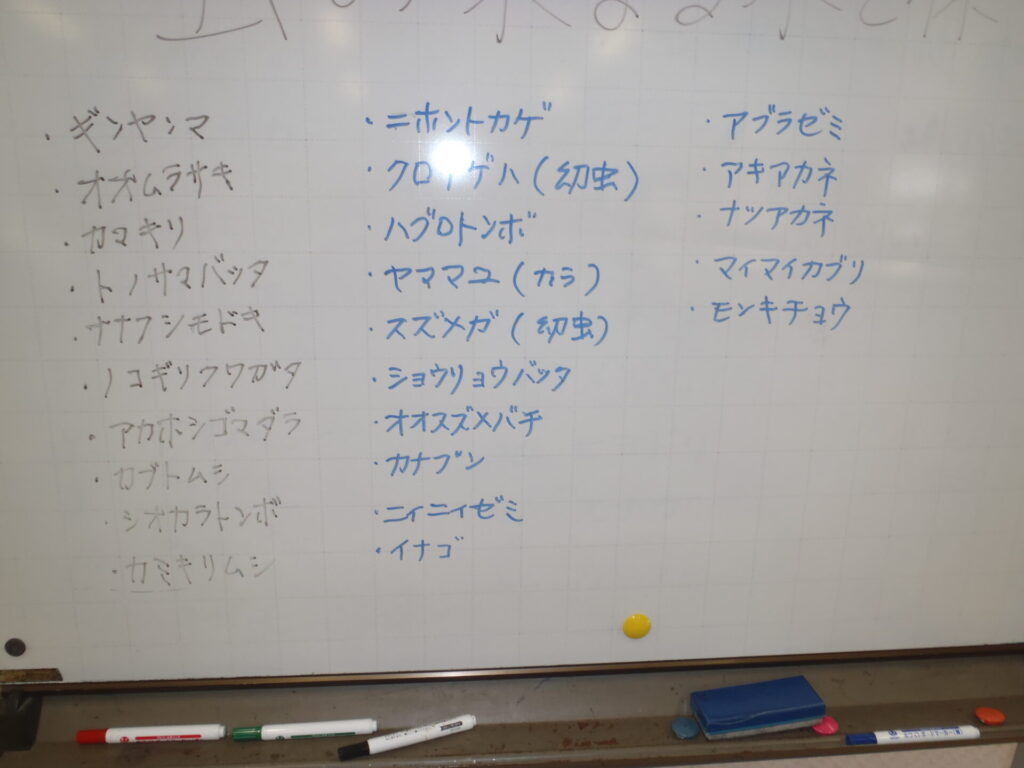 ・ギンヤンマ
・オオムラサキ
・カマキリ
・トノサマバッタ
・ナナフシモドキ
・ノコギリクワガタ
・アカボシゴマダラ
・カブトムシ
・シオカラトンボ
・カミキリムシ
・ニホントカゲ
・クロアゲハ(幼虫)
・ハグロトンボ
・ヤママユ(カラ)
・スズメガ(幼虫)
・ショウリョウバッタ
・オオスズメバチ
・カナブン
・ニィニィゼミ
・イナゴ
・アブラゼミ
・アキアカネ
・ナツアカネ
・マイマイカブリ
・モンキチョウ